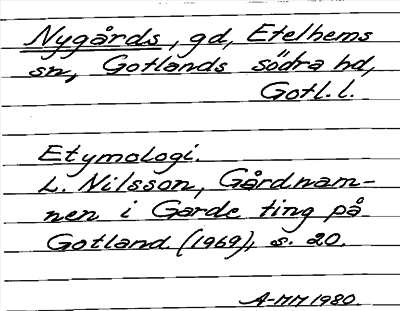 Nygårds, gd, Etelhems
sn, Gotlands södra hd,
Gotl. l.
Etymologi.
L. Nilsson, Gårdnam-
nen i Garde ting på
Gotland (1969), s. 20.
A-MM 1980